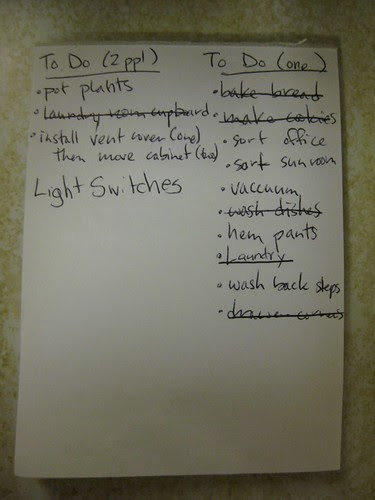 To Do (2 ppl)
• pot plants
• laundry room cupboard
• install vent cover (one)
then move cabinet (two)
Light Switches
To Do (one)
• bake bread
• make cookies
• sort office
• sort sunroom
• vaccuum
• wash dishes
• hem pants
• Laundry
• wash back steps
• drawer